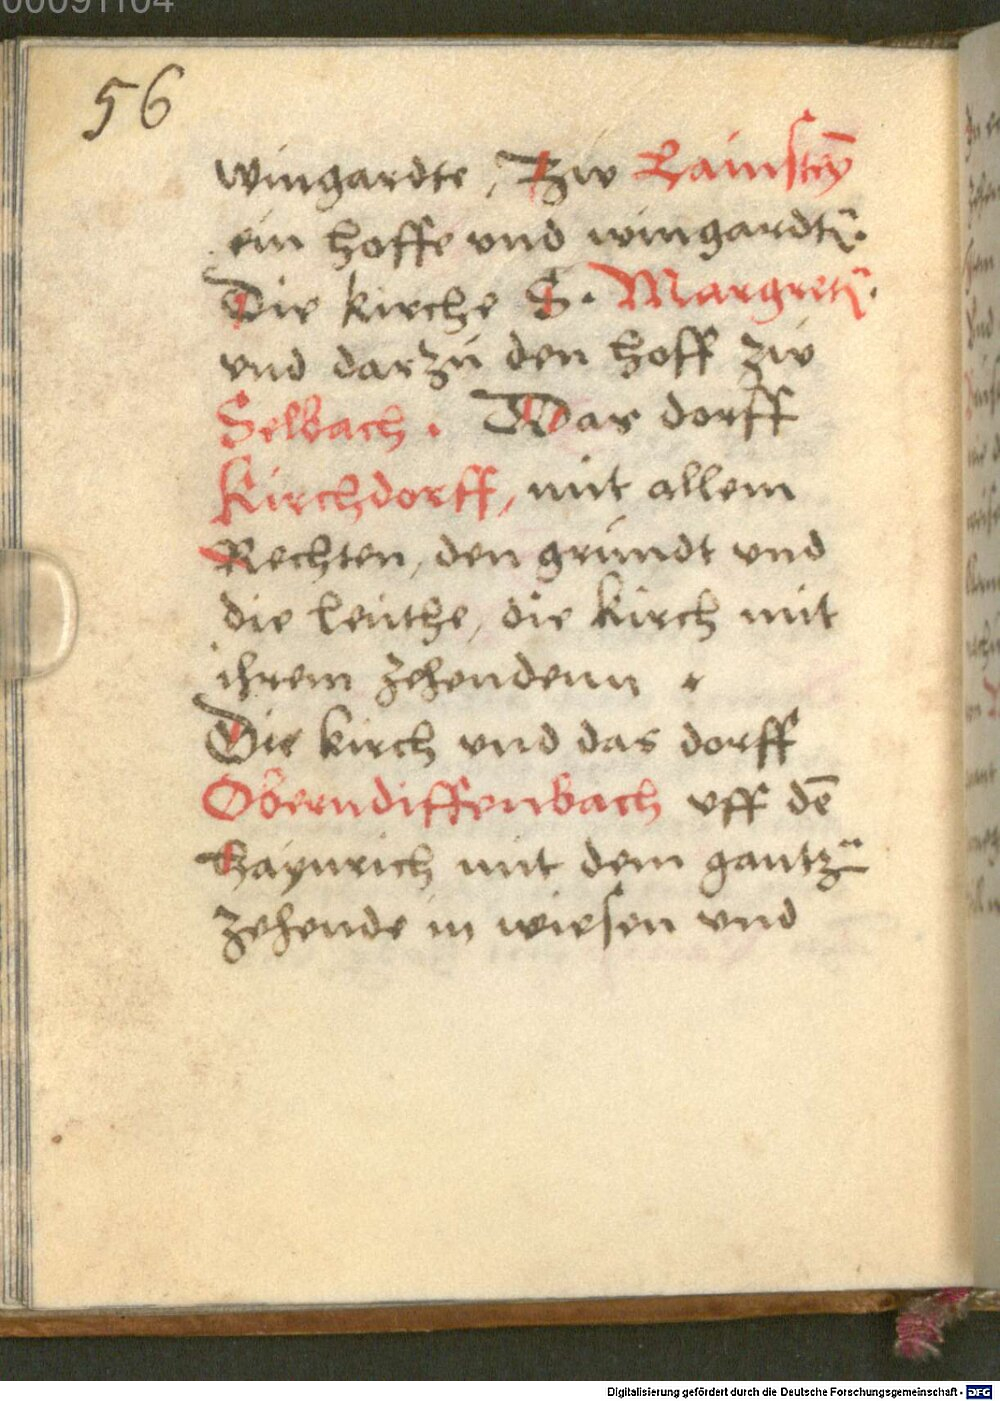 00091104
56
wingardte, Zw Lainstey̅
ein hoffe vnd wingardte̅.
Die kirche S. Margrete̅.
vnd darzu den hoff zw
Selbach. Das dorff
Kirchdorff, mit allem
Rechten, den grundt vnd
die leuthe, die kirch mit
ihrem zehendenn
Die kirch vnd das dorff
Oberndiffenbach vff de̅
Haynrich mit dem gantze̅
zehende in wiesen vnd
Digitalisierung gefördert durch die Deutsche Forschungsgemeinschaft - DFG